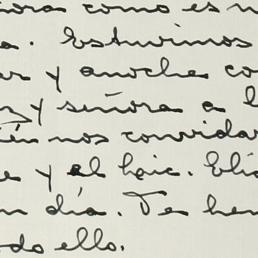 ora como es n
a. Estuvimos
ar y anoche co
y señora a l
én nos convidar
e y al haic. Elia
n día. Te hem
do ello.